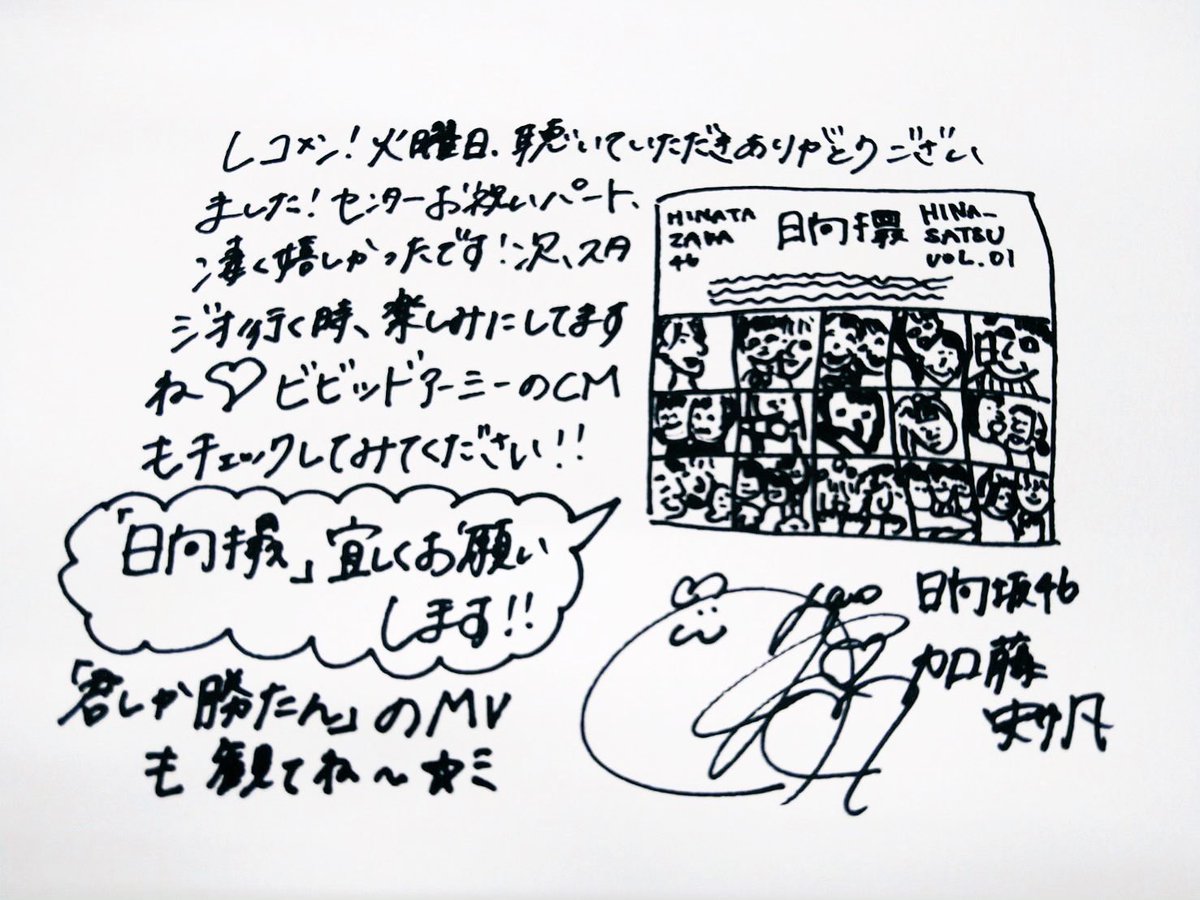 レコメン!火曜日、聴いていただきありがとうござい
ました!センターお祝いパート、
凄く嬉しかったです!次、スタ
ジオ行く時、楽しみにしてます
ね♡ビビッドアーミーのCM
もチェックしてみてください!!
「日向撮」宜しくお願い
します!!
「君しか勝たん」のMV
も観てね〜☆ミ
HINATA
ZAKA
46
日向撮
HINA_
SATSU
VOL.01
日向坂46
加藤
史帆